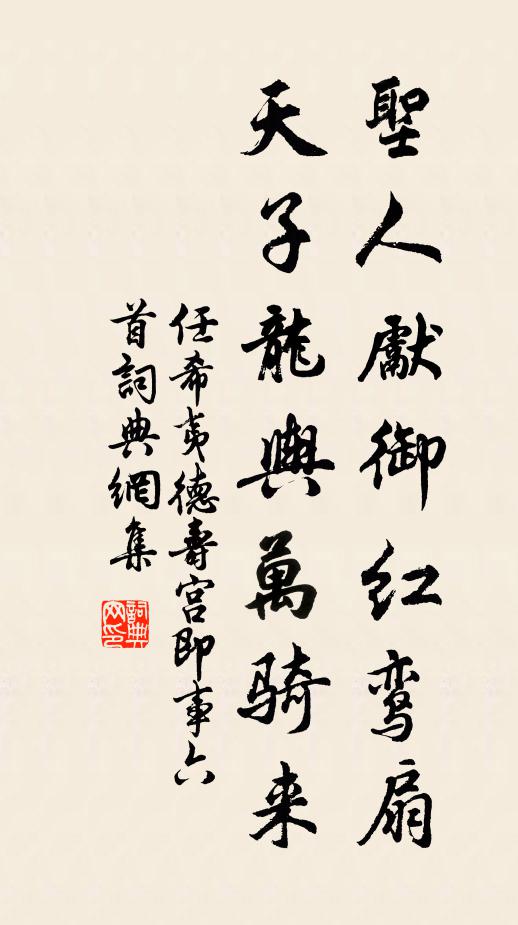 聖人獻御红鸾扇
天子龍輿萬騎来
任希夷德壽宫即事六
首詞典網集
詞典
网印